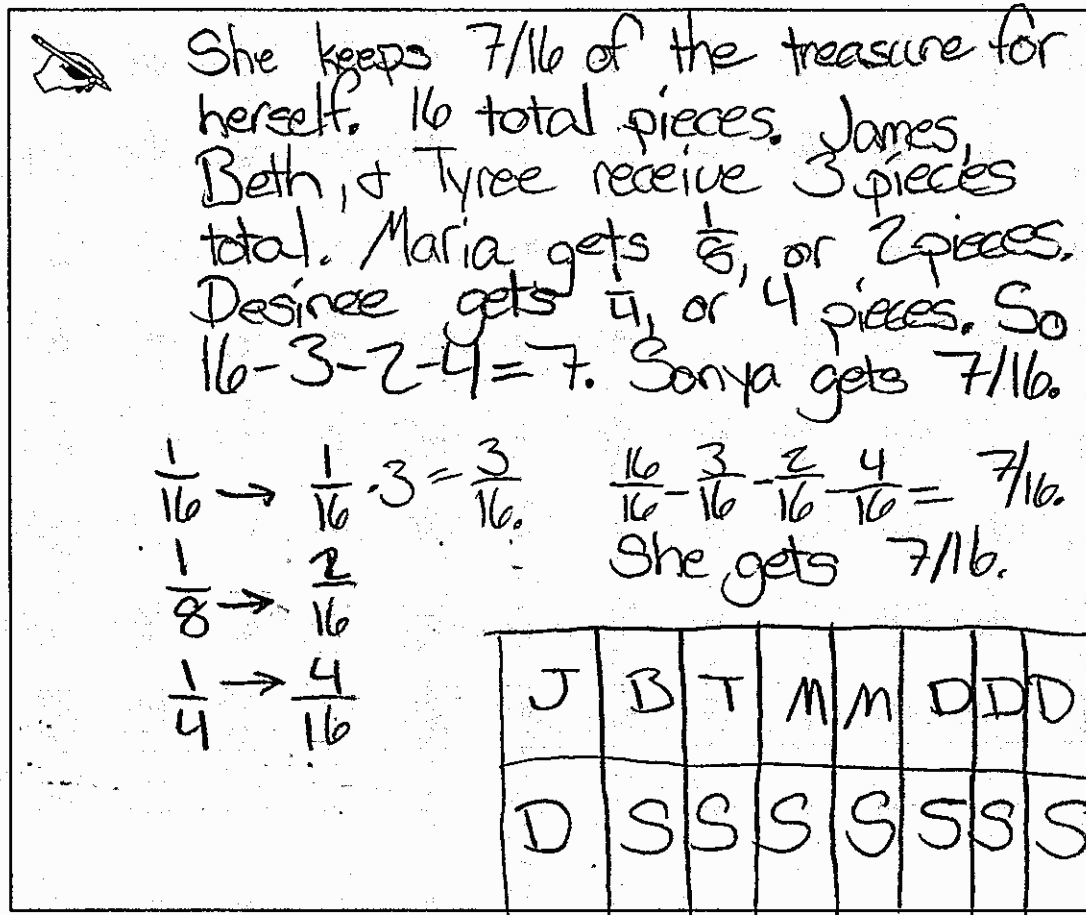 She keeps 7/16 of the treasure for
herself. 16 total pieces. James,
Beth, & Tyree receive 3 pieces
total. Maria gets 1/8, or 2 pieces.
Desiree gets 1/4, or 4 pieces. So
16-3-2-4=7. Sonya gets 7/16.
1/16 → 1/16 · 3 = 3/16.
1/8 → 2/16
1/4 → 4/16
16/16 - 3/16 - 2/16 - 4/16 = 7/16.
She gets 7/16.
J B T M M D D D
D S S S S S S S